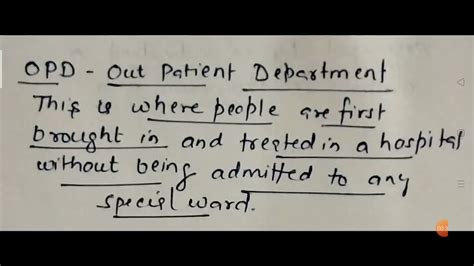 OPD - Out Patient Department
This is where people are first
brought in and treated in a hospital
without being admitted to any
special ward.